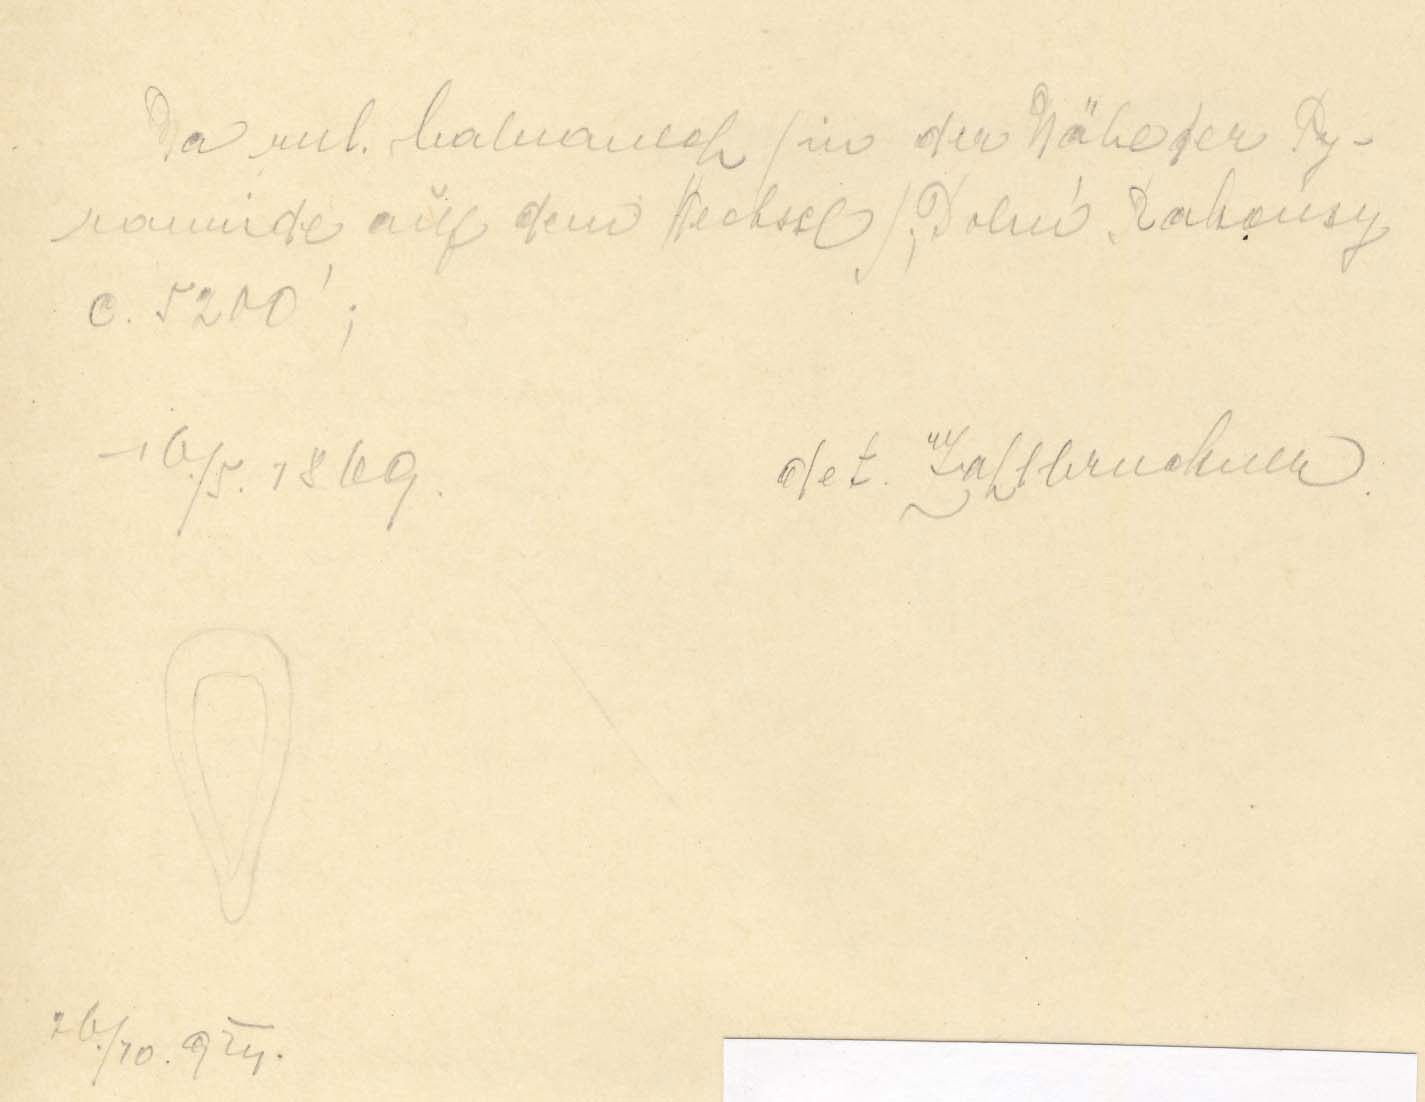 Na rul. kamenech /in der Nähe der Py-
ramide auf dem Wechsel/; Dolní Rakousy
c. 5200';
16./5. 1869.
det. Zahlbruckner.
26./10.